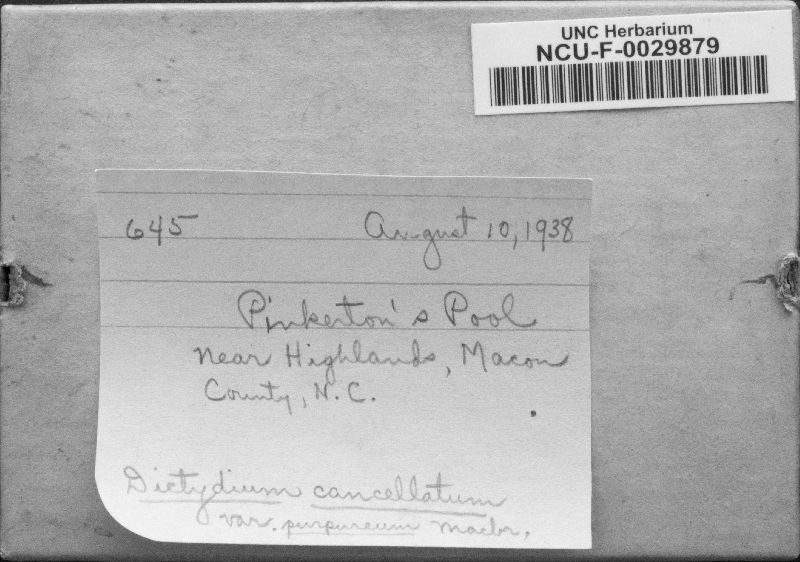 UNC Herbarium
NCU-F-0029879
645 August 10, 1938
Pinkerton's Pool
near Highlands, Macon
County, N.C.
Dictydium cancellatum
var. purpureum Macbr.